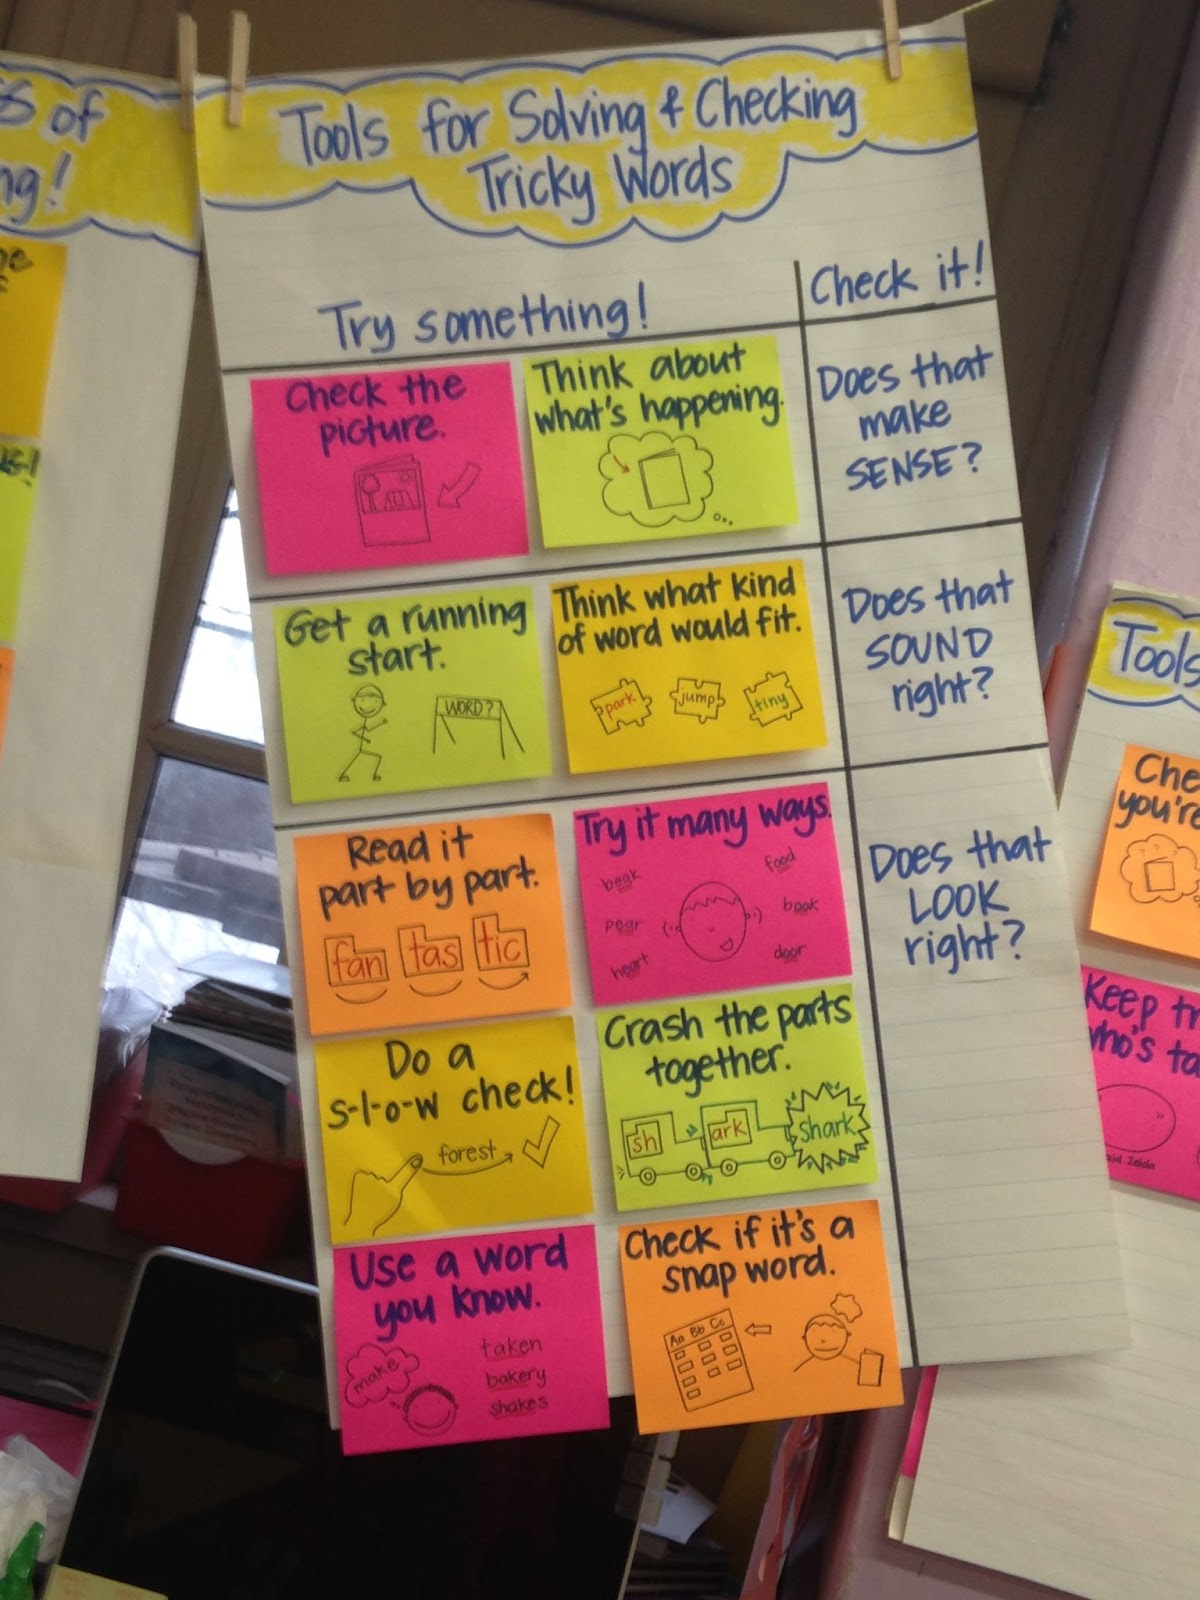 of
ng!
Tools for Solving & Checking
Tricky Words
Try something!
Check it!
Check the
picture.
Think about
what's happening.
Does that
make
SENSE?
Get a running
start.
WORD?
Think what kind
of word would fit.
park
jump
tiny
Does that
SOUND
right?
Read it
part by part.
fan tas tic
Try it many ways.
beak
food
pear
book
heart
door
Does that
LOOK
right?
Do a
s-l-o-w check!
forest
Crash the parts
together.
sh ark shark
Use a word
you know.
make
taken
bakery
shakes
Check if it's a
snap word.
Aa Bb Cc
Tools
Che
you're
Keep tr
who's ta